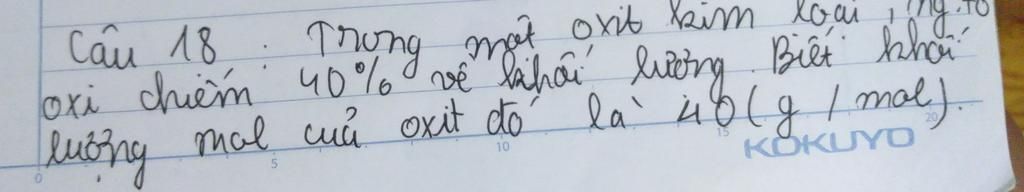 Câu 18 : Trong một oxit kim loại, ng.tố
oxi chiếm 40% về khối lượng. Biết khối
lượng mol cuả oxit đó là 40 (g / mol).
0 5 10 15 20
KOKUYO